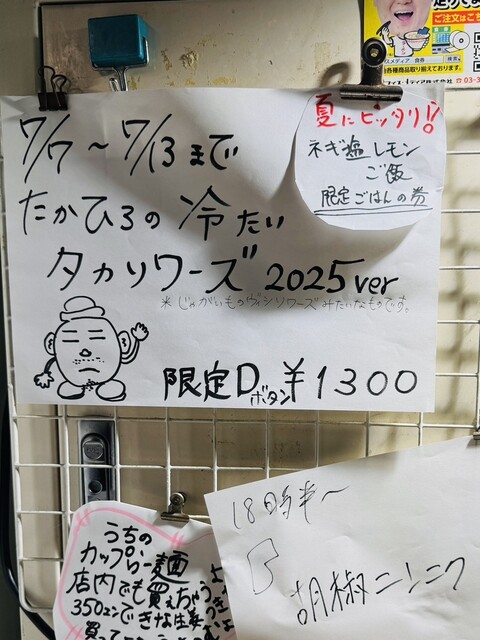 7/7〜7/13まで
たかひろの冷たい
タカソワーズ 2025ver
※じゃがいものヴィシソワーズみたいなものです。
限定Dボタン ¥1300
夏にピッタリ!!
ネギ塩レモン
ご飯
限定ごはんの券
18時半〜
胡椒ニンニク
うちの
カップらー麺
店内でも買えちゃうよ
350エンできな生姜
ご注文は